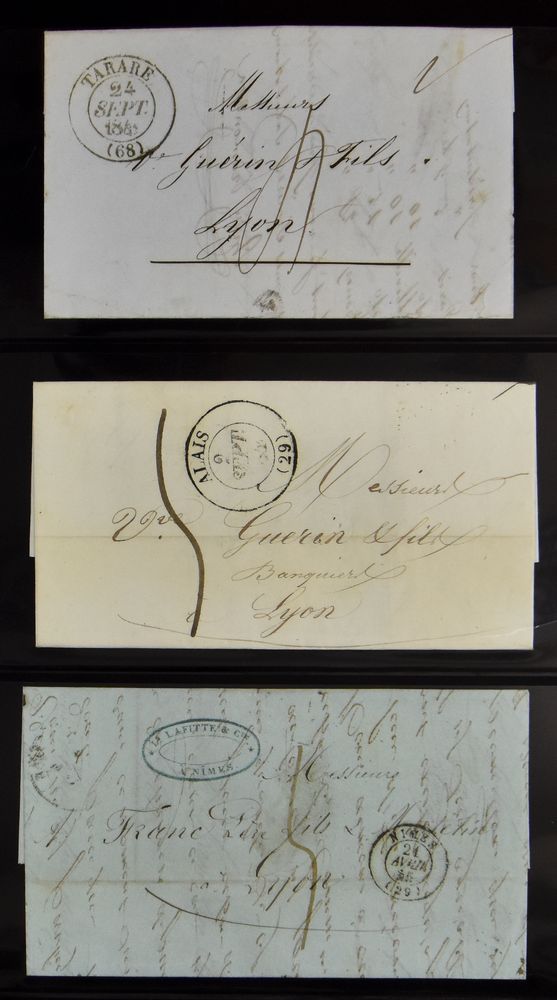 TARARE
24
SEPT.
(68)
Messieurs
Ve Guérin & Fils
Lyon
ALAIS
6
SEPT.
(29)
Messieurs
Vve Guerin & fils
Banquiers
à Lyon
LAFITTE & Cie
NIMES
Messieurs
Franc Père fils &
Lyon
NIMES
21
AVRIL
(29)